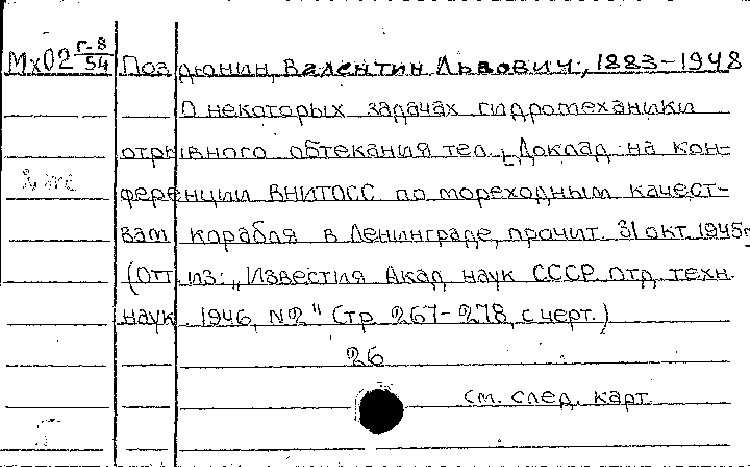 Мх02 Г-8/54 Поздюнин, Валентин Львович, 1883-1948
О некоторых задачах гидромеханики
отрывного обтекания тел. Доклад на кон-
ференции ВНИТОСС по мореходным качест-
вам корабля в Ленинграде, прочит. 31 окт. 1945г
(Отт. из: „Известия Акад. наук СССР Отд. техн.
наук 1946, №2" Стр. 267-278, с черт.)
26
см. след. карт.